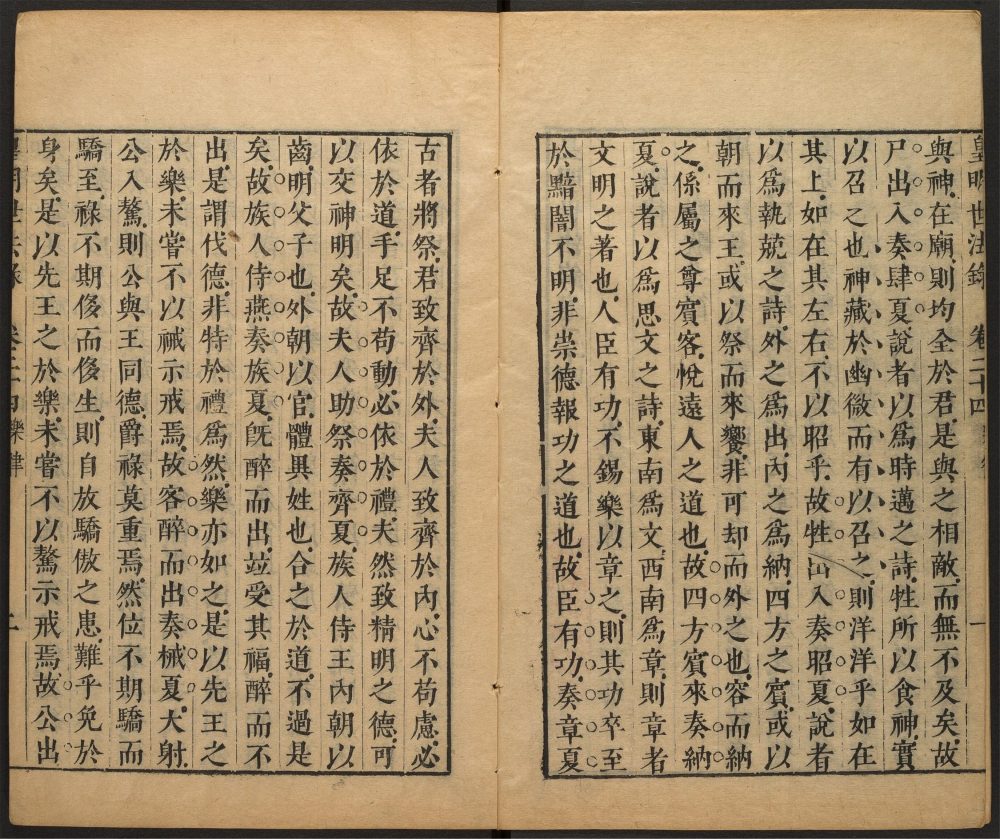 皇明世法錄 卷二十四 一
與神在廟則均全於君是與之相敵而無不及矣故
尸出入奏肆夏說者以爲時邁之詩牲所以食神實
以召之也神藏於幽微而有以召之則洋洋乎如在
其上如在其左右不以昭乎故牲出入奏昭夏說者
以爲執兢之詩外之爲出內之爲納四方之賓或以
朝而來王或以祭而來饗非可却而外之也容而納
之係屬之尊賓客悅遠人之道也故四方賓來奏納
夏說者以爲思文之詩東南爲文西南爲章則章者
文明之著也人臣有功不錫樂以章之則其功卒至
於黯闇不明非崇德報功之道也故臣有功奏章夏
古者將祭君致齊於外夫人致齊於內心不苟慮必
依於道手足不苟動必依於禮夫然致精明之德可
以交神明矣故夫人助祭奏齊夏族人侍王內朝以
齒明父子也外朝以官體異姓也合之於道不過是
矣故族人侍燕奏族夏旣醉而出竝受其福醉而不
出是謂伐德非特於禮爲然樂亦如之是以先王之
於樂未嘗不以祴示戒焉故客醉而出奏祴夏大射
公入驁則公與王同德爵祿莫重焉然位不期驕而
驕至祿不期侈而侈生則自放驕傲之患難乎免於
身矣是以先王之於樂未嘗不以驁示戒焉故公出
皇明世法錄 卷二十四 樂律 二